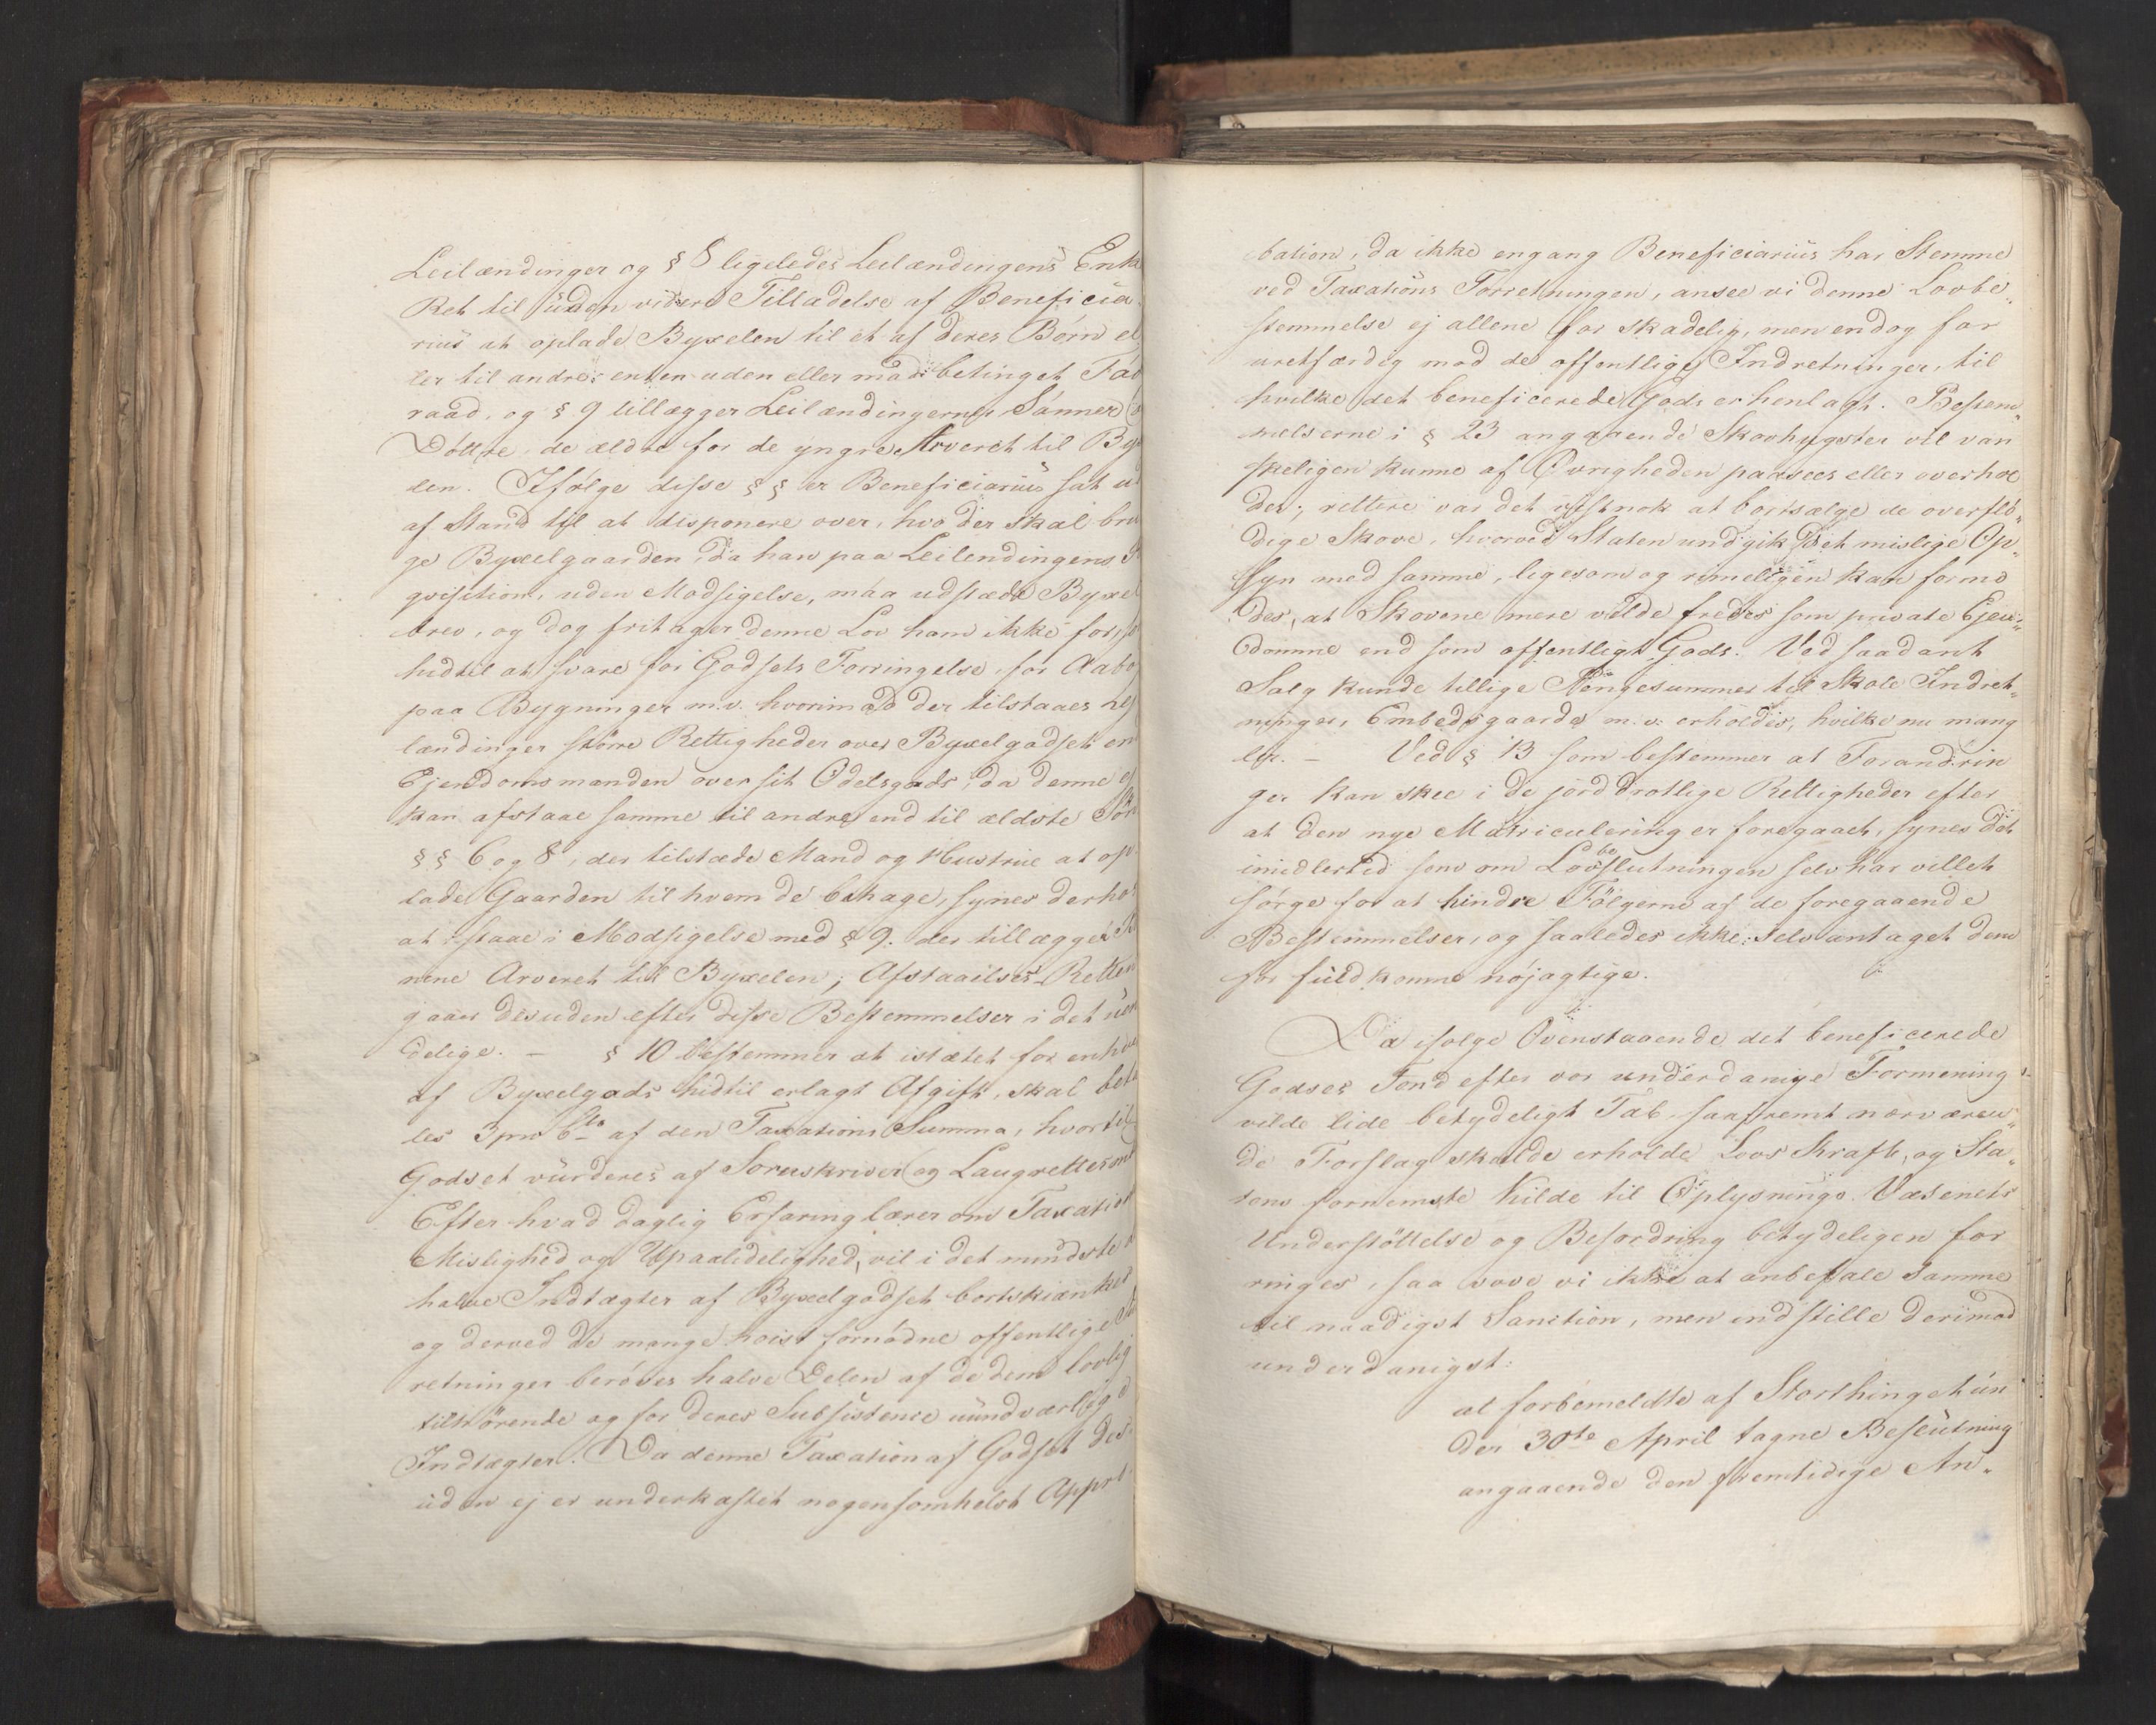 Leilændinger og § 8 ligeledes Leilændingens Enke
Ret til uden videre Tilladelse af Beneficia-
rius at oplade Byxelen til et af deres Børn el
ler til andre, enten uden eller mod betinget Fav
raad, og § 9 tillægger Leilændingernes Sønner
Döttre, de ældre for de yngre Arveret til Byx
len. Ifølge disse §§ er Beneficiarius sat ud
af Stand til at disponere over, hvo der skal bru
ge Byxelgaarden, da han paa Leilendingens R
qvisition, uden Modsigelse, maa udstæde Byxel
brev, og dog fritager denne Lov ham ikke for, so
hidtil at svare for Godsets Forringelse, for Aabo
paa Bygninger m.v. hvorimod der tilstaaes Lej
lændinger större Rettigheder over Byxelgodset en
Ejendomsmanden over sit Odelsgods, da denne ej
kan afstaae samme til andre end til ældste Søn
§§ 6 og 8, der tilstæde Mand og Hustrue at op-
lade Gaarden til hvem de behage, synes derhos
at staae i Modsigelse med § 9. der tillægger
nene Arveret til Byxelen; Afstaaelses-Retten
gaaer desuden efter disse Bestemmelser i det uen
delige. – § 10 bestemmer at istætet for enhver
af Byxelgods hidtil erlagt Afgift, skal beta
les 3 pro Cto af den Taxations Summa, hvortil
Godset vurderes af Sorenskriver og Laugrettesmæ
Efter hvad daglig Erfaring lærer om Taxation
Mislighed og Upaalidelighed, vil i det mindste
halve Indtægter af Byxelgodset bortskiænkes
og derved de mange höist fornödne offentlige In
retninger beröves halve Delen af de dem lovlig
tilhörende og for deres Subsistence uundværlige
Indtægter. Da denne Taxation af Godset des-
uden ej er underkastet nogensomhelst Appro
bation, da ikke engang Beneficiarius har Stemme
ved Taxations Forretningen, ansee vi denne Lovbe„
stemmelse ej allene for skadelig, men endog for
uretfærdig mod de offentlige Indretninger, til
hvilke det beneficerede Gods er henlagt. Bestem„
melserne i § 23 angaaende Skovhugster vil van
skeligen kunne af Øvrigheden paasees eller overhol
des; rettere var det vistnok at bortsælge de overflö„
dige Skove, hvorved Staten undgik det mislige Op„
syn med samme, ligesom og rimeligen kan formo
des, at Skovene mere vilde fredes som private Ejen„
domme end som offentligt Gods. Ved saadant
Salg kunde tillige Pengesummer til Skole Indret„
ninger, Embedsgaarde m: v: erholdes, hvilke nu mang
ler. – Ved § 13 som bestemmer at Forandrin
ger kan skee i de jorddrotlige Rettigheder efter
at den nye Matriculering er foregaaet, synes det
imidlertid som om Lovbeslutningen selv har villet
sørge for at hindre Fölgerne af de foregaaende
Bestemmelser, og saaledes ikke selv antaget dem
for fuldkomne nøjagtige.
Da ifølge Ovenstaaende det beneficerede
Godses Fond efter vor underdanige Formening
vilde lide betydeligt Tab, saafremt nærværen„
de Forslag skulde erholde Lovs Kraft, og Sta„
tens fornemste Kilde til Oplysnings Væsenets
Understöttelse og Befordring betydeligen for
ringes, saa vove vi ikke at anbefale samme
til naadigst Sanction, men indstille derimod
underdanigst:
at forbemeldte af Storthinget un
der 30te April tagne Beslutning
angaaende den fremtidige An„